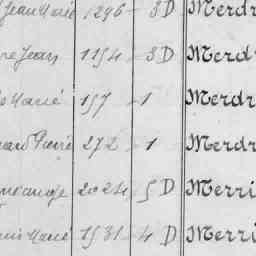 Jean Marie 1296 - 3 D Merdr
re Jean 1154 - 3 D Merdr
Marie 157 - 1 Merdr
Pierre 272 - 1 Merdr
2024 - 5 D Merri
Marie 1531 - 4 D Merri